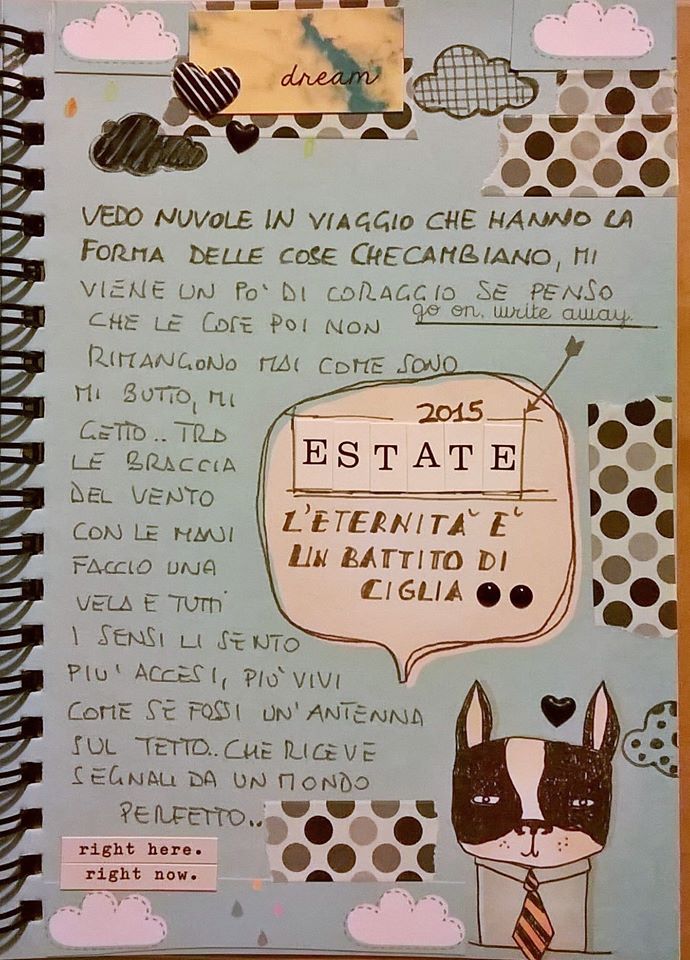 dream
VEDO NUVOLE IN VIAGGIO CHE HANNO LA
FORMA DELLE COSE CHECAMBIANO, MI
VIENE UN PO' DI CORAGGIO SE PENSO
go on, write away.
CHE LE COSE POI NON
RIMANGONO MAI COME SONO
MI BUTTO, MI
GETTO.. TRA
LE BRACCIA
DEL VENTO
CON LE MANI
FACCIO UNA
VELA E TUTTI
I SENSI LI SENTO
PIU' ACCESI, PIU' VIVI
COME SE FOSSI UN'ANTENNA
SUL TETTO.. CHE RICEVE
SEGNALI DA UN MONDO
PERFETTO..
2015
ESTATE
L'ETERNITA' E'
UN BATTITO DI
CIGLIA
right here.
right now.